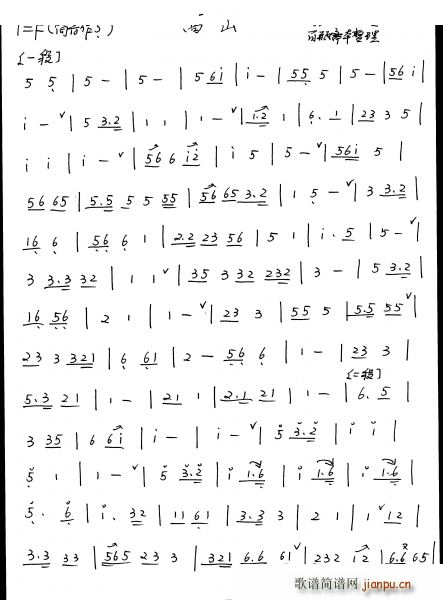 1=F
西山
[一段]
5 5 | 5 - | 5 - | 5 6i | i - | 55 5 | 5 - | 56 i |
i - | 5 3.2 | 1 1 | 1 - | 1.2 1 | 6. 1 | 23 3 5 |
i i | i - | 56 6 i2 | i 5 | 5 - | 56i 5 |
56 65 | 5.5 5 5 55 | 56 65 3.2 | 1 5 - | 3 3.2 |
16 6 | 56 6 1 | 2.2 23 56 | 5 1 | i. 5 | 5 - |
3 3.3 32 | 1 1 | 35 3 32 232 | 3 - | 5 3.2 |
16 56 | 2 1 | 1 - | 23 3 | 55 5 | 5.5 55 |
23 3 321 | 6 61 | 2 - 56 6 | 1 - | 23 3 |
[二段]
5.3 21 | 1 - | 21 1 | 2.1 21 | 1 - | 6. 5 |
3 35 | 6 6i | i - | i - | 5 3.2 | i i |
5 1 | 1 - | 5 3.2 | i 1.6 | i 1.6 | i 1.6 |
5. 6 | i. 32 | 11 61 | 3.3 3 | 2 1 | 1 12 |
3.3 33 | 565 23 3 | 321 6.6 61 | 232 12 | 6.6 65 |
歌谱简谱网
jianpu.cn